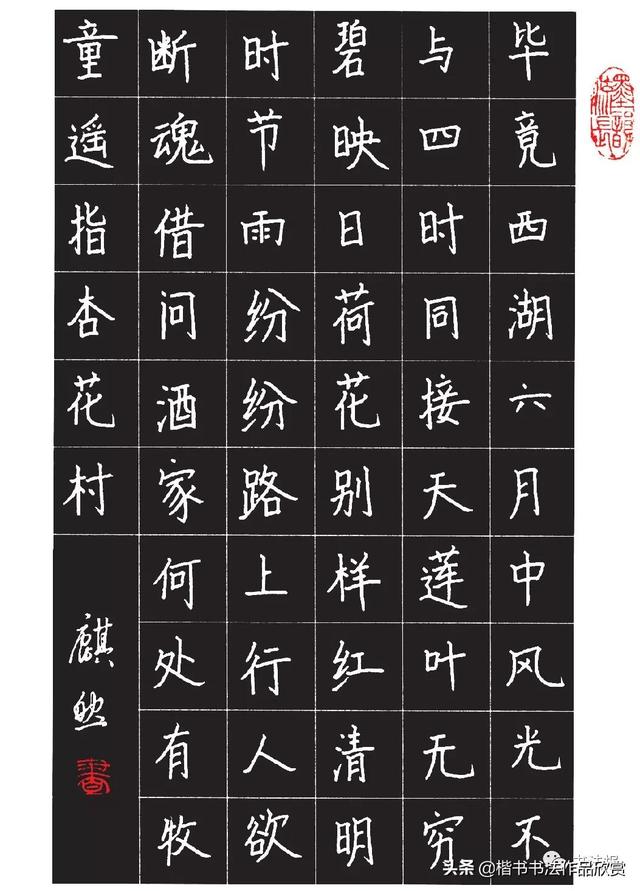 毕竟西湖六月中风光不
与四时同接天莲叶无穷
碧映日荷花别样红清明
时节雨纷纷路上行人欲
断魂借问酒家何处有牧
童遥指杏花村
麒
書
书法报
头条 @楷书书法作品欣赏